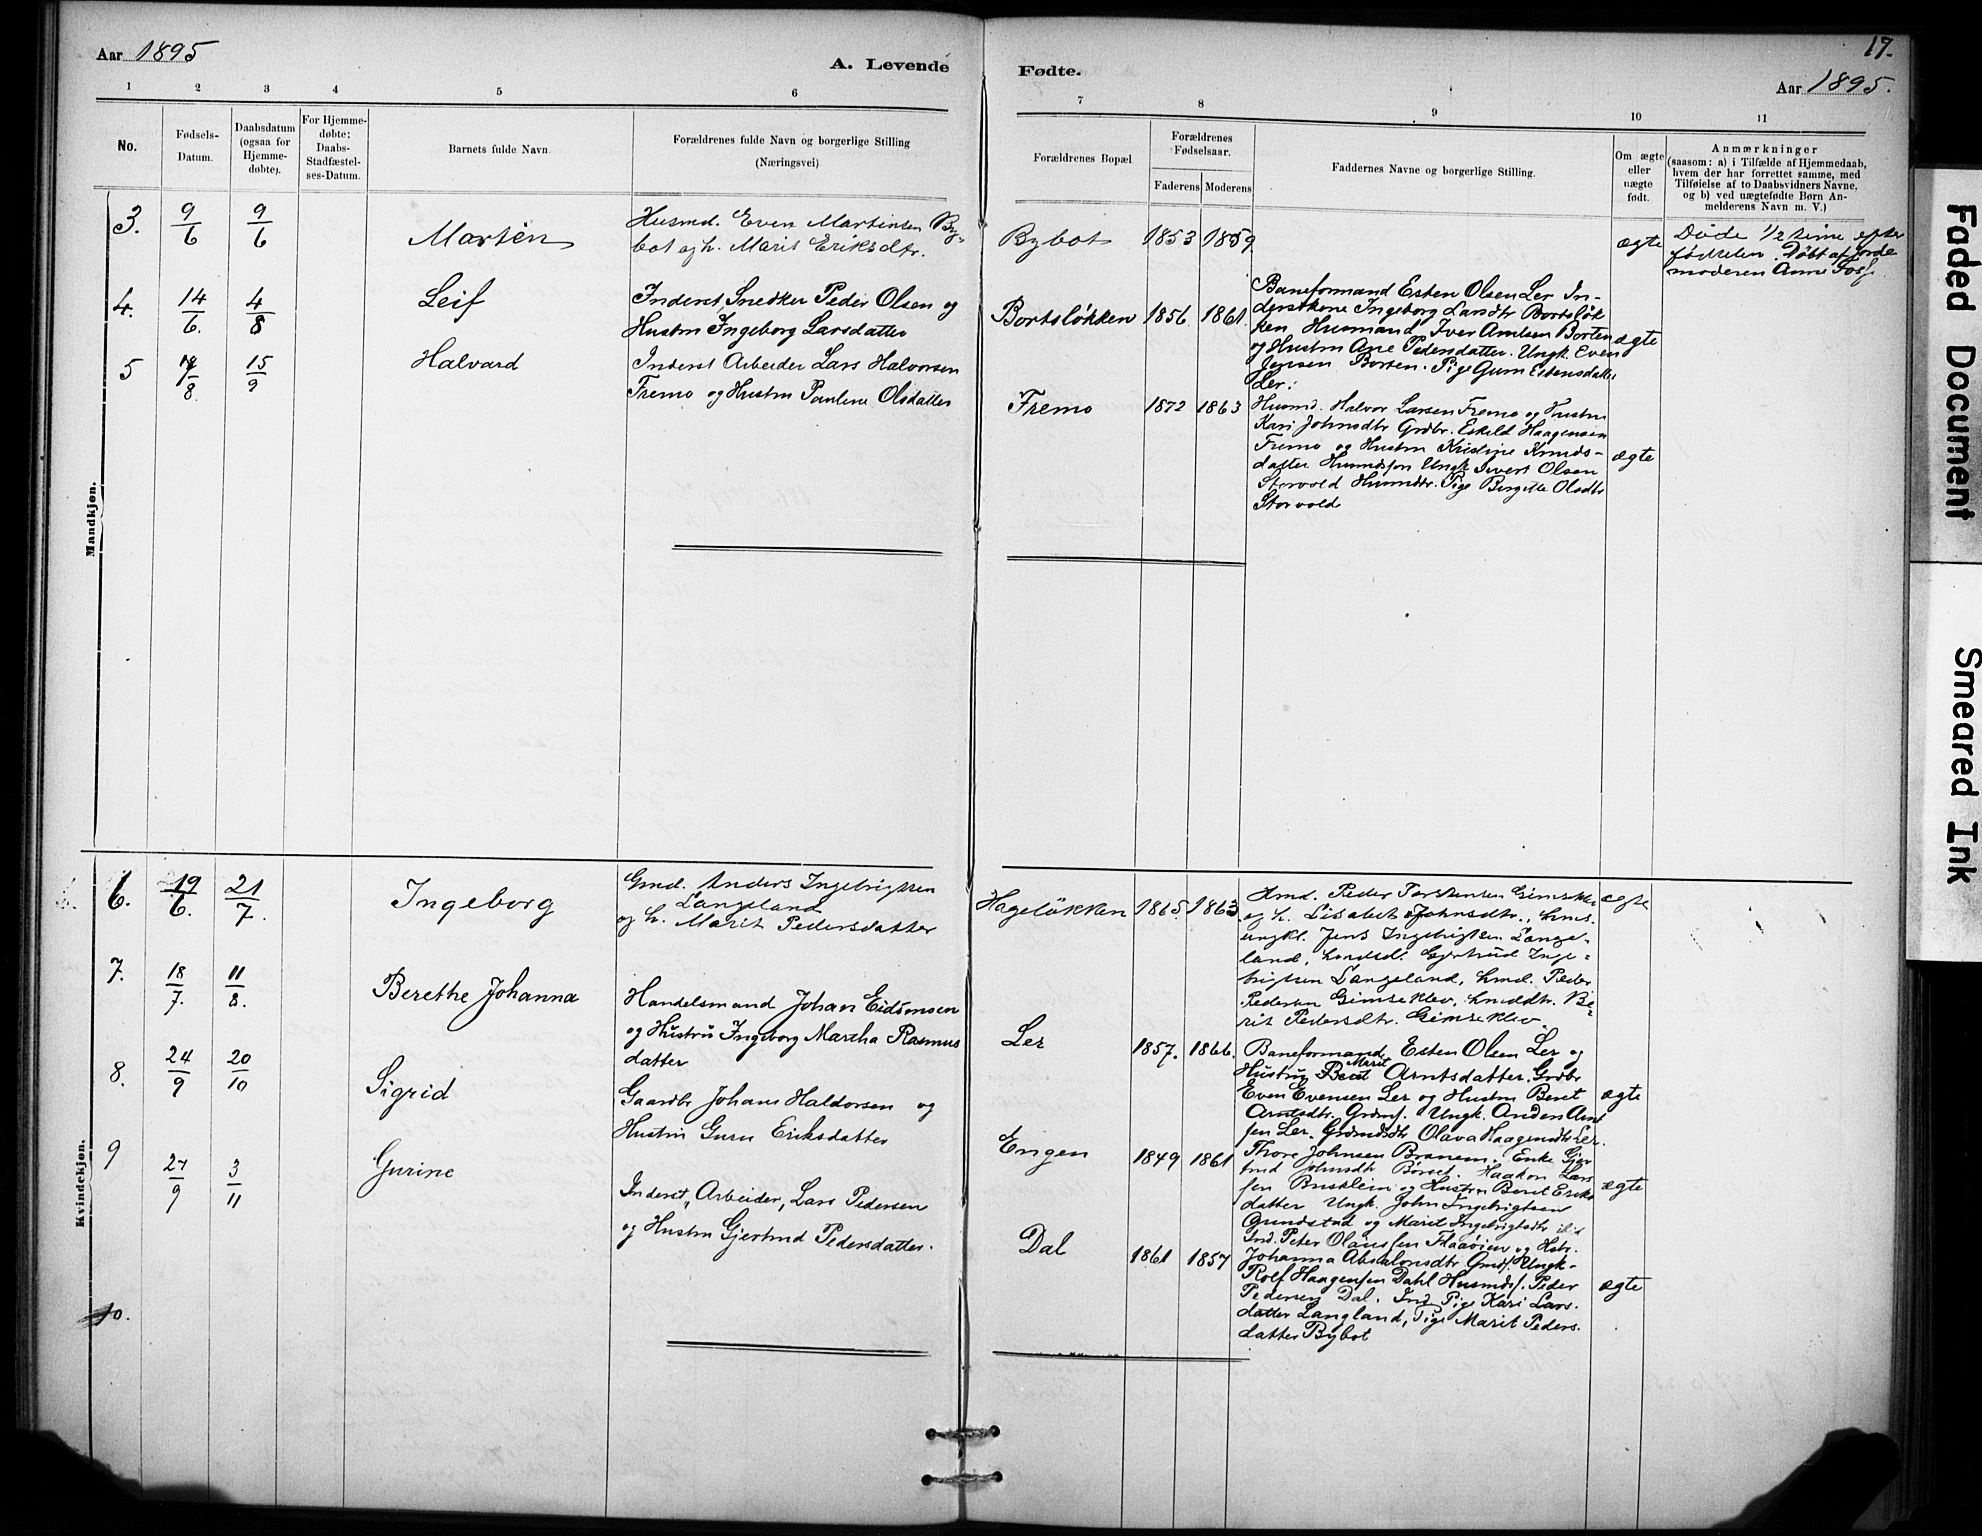 Aar 1895
A. Levende
Fødte.
17.
Aar 1895.
1 2 3 4 5 6 7 8 9 10 11
No.
Fødsels-
Datum.
Daabsdatum
(ogsaa for
Hjemme-
døbte).
For Hjemme-
døbte:
Daabs-
Stadfæstel-
ses-Datum.
Barnets fulde Navn
Forældrenes fulde Navn og borgerlige Stilling
(Næringsvei)
Forældrenes Bopæl
Forældrenes
Fødselsaar.
Faderens Moderens
Faddernes Navne og borgerlige Stilling.
Om ægte
eller
uægte
født.
Anmærkninger
(saasom: a) i Tilfælde af Hjemmedaab,
hvem der har forrettet samme, med
Tilføielse af to Daabsvidners Navne,
og b) ved uægtefødte Børn An-
melderens Navn m. V.)
Mandkjøn.
3. 9/6 9/6
Martin
Husmd. Even Martinsen By-
bot og h. Marit Eriksdtr.
Bybot 1853 1859
ægte
Døde 1/2 time efter
fødselen. Døbt af Jorde
moderen Anne Foss.
4. 14/6. 4/8
Leif
Inderst Snedker Peder Olsen og
Hustru Ingeborg Larsdatter
Bortsløkken 1856 1861
Baneformand Esten Olsen Ler In-
derstkone Ingeborg Larsdtr Bortsløk
ken Husmand Iver Arntsen Borten
og Hustru Ane Pedersdatter. Ungk Even
Jensen Borten. Pige Guru Estensdatter
Ler.
ægte
5 /8. 15/9
Halvard
Inderst Arbeider Lars Halvorsen
Fremo og Hustru Pauline Olsdatter
Fremo 1872 1863
Husmd. Halvor Larsen Fremo og Hustru
Kari Johnsdtr Grdbr. Eskild Haagensen
Fremo og Hustru Kristine Knuds-
datter Husmdsøn Ungk Sivert Olsen
Storvold Husmdtr. Pige Birgitte Olsdtr
Storvold
ægte
Kvindekjøn.
6. 19/6. 21/7.
Ingeborg
Gmd. Anders Ingebrigtsen
Langeland
og h. Marit Pedersdatter
Hageløkken 1865 1863
Hmd. Peder Torstensen Gimseklev
og h. Lisabet Johnsdtr., hms.
ungkl. Jens Ingebrigtsen Lange-
land, Gjertrud Inge-
brigtsen Langeland, hmd. Peder
Pedersen Gimseklev, hmddtr. Be-
rit Pedersdtr. Gimseklev.
ægte
7. 18/7. 11/8.
Berethe Johanna
Handelsmand Johan Eidsmosen
og Hustru Ingeborg Martha Rasmus
datter
Ler 1857. 1866.
Baneformand Esten Olsen Ler og
Hustru Berit Marit Arntsdatter. Grdbr
Even Evensen Ler og Hustru Beret
Arntsdtr. Grdms. Ungk. Anders Arnt
sen Ler. Grdmdsdtr Olava Haagensdtr Ler.
ægte
8. 24/9 20/10
Sigrid
Gaardbr Johan Haldorsen og
Hustru Guru Eriksdatter
Engen 1849 1861
Thore Johnsen Branem. Enke Gjer
trud Johnsdtr Børset. Haldor Lars
sen Busklein og Hustru Beret Eriks
datter Ungk. John Ingebrigtsen
Grindstad og Marit Ingebrigtsdtr ibid
ægte
9 27/9 3/11
Gurine
Inderst, Arbeider, Lars Pedersen
og Hustru Gjertrud Pedersdatter.
Dal 1861 1857
Ind. Peter Olaussen Flaaøien og Hstr.
Johanna Absalonsdtr Gmds. Ungk-
Rolf Haagensen Dahl Husmds. Peder
Pedersen Dal. Ind Pige Kari Lars-
datter Langland, Pige Marit Peders-
datter Bybot
ægte
10.
Faded Document
Smeared Ink